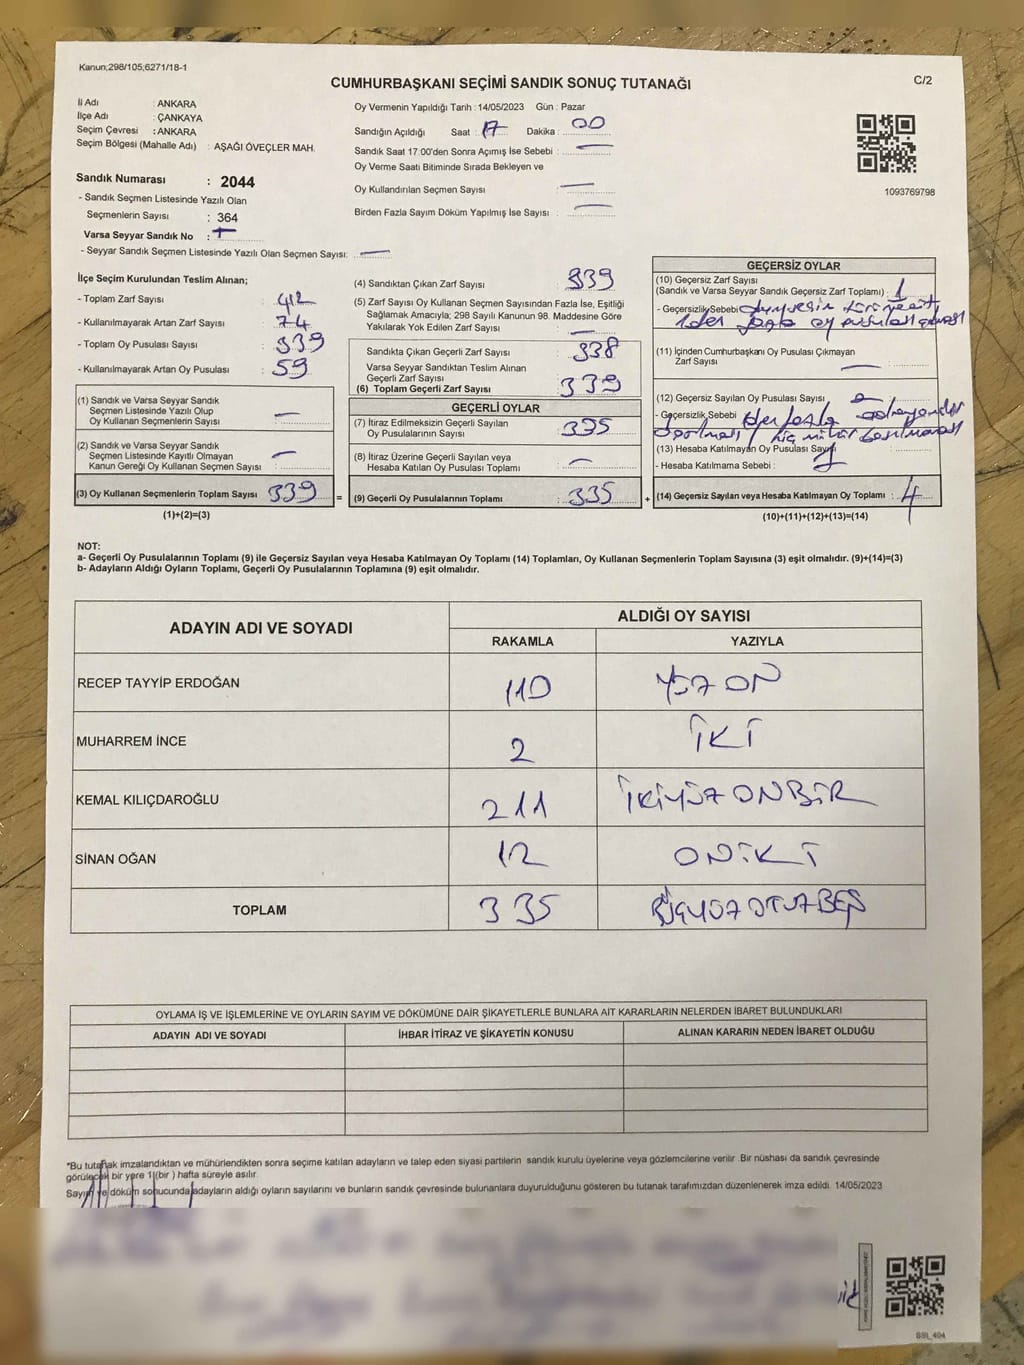 Kanun;298/105;6271/18-1
CUMHURBAŞKANI SEÇİMİ SANDIK SONUÇ TUTANAĞI
C/2
İl Adı : ANKARA
İlçe Adı : ÇANKAYA
Seçim Çevresi : ANKARA
Seçim Bölgesi (Mahalle Adı) : AŞAĞI ÖVEÇLER MAH.
Sandık Numarası : 2044
- Sandık Seçmen Listesinde Yazılı Olan
Seçmenlerin Sayısı : 364
Varsa Seyyar Sandık No :
- Seyyar Sandık Seçmen Listesinde Yazılı Olan Seçmen Sayısı:
Oy Vermenin Yapıldığı Tarih : 14/05/2023 Gün : Pazar
Sandığın Açıldığı Saat : 17 Dakika : 00
Sandık Saat 17:00'den Sonra Açımış İse Sebebi :
Oy Verme Saati Bitiminde Sırada Bekleyen ve
Oy Kullandırılan Seçmen Sayısı :
Birden Fazla Sayım Döküm Yapılmış İse Sayısı :
1093769798
İlçe Seçim Kurulundan Teslim Alınan;
- Toplam Zarf Sayısı : 412
- Kullanılmayarak Artan Zarf Sayısı : 74
- Toplam Oy Pusulası Sayısı : 339
- Kullanılmayarak Artan Oy Pusulası : 59
(1) Sandık ve Varsa Seyyar Sandık
Seçmen Listesinde Yazılı Olup
Oy Kullanan Seçmenlerin Sayısı :
(2) Sandık ve Varsa Seyyar Sandık
Seçmen Listesinde Kayıtlı Olmayan
Kanun Gereği Oy Kullanan Seçmen Sayısı :
(3) Oy Kullanan Seçmenlerin Toplam Sayısı 339 =
(1)+(2)=(3)
(4) Sandıktan Çıkan Zarf Sayısı : 339
(5) Zarf Sayısı Oy Kullanan Seçmen Sayısından Fazla İse, Eşitliği
Sağlamak Amacıyla; 298 Sayılı Kanunun 98. Maddesine Göre
Yakılarak Yok Edilen Zarf Sayısı :
Sandıkta Çıkan Geçerli Zarf Sayısı : 338
Varsa Seyyar Sandıktan Teslim Alınan
Geçerli Zarf Sayısı :
(6) Toplam Geçerli Zarf Sayısı : 339
GEÇERLİ OYLAR
(7) İtiraz Edilmeksizin Geçerli Sayılan
Oy Pusulalarının Sayısı : 335
(8) İtiraz Üzerine Geçerli Sayılan veya
Hesaba Katılan Oy Pusulası Toplamı :
(9) Geçerli Oy Pusulalarının Toplamı : 335 +
GEÇERSİZ OYLAR
(10) Geçersiz Zarf Sayısı
(Sandık ve Varsa Seyyar Sandık Geçersiz Zarf Toplamı) : 1
- Geçersizlik Sebebi
1den fazla oy pusulası
(11) İçinden Cumhurbaşkanı Oy Pusulası Çıkmayan
Zarf Sayısı :
(12) Geçersiz Sayılan Oy Pusulası Sayısı : 2
- Geçersizlik Sebebi
hiç mühür basılmaması
(13) Hesaba Katılmayan Oy Pusulası Sayısı 1
- Hesaba Katılmama Sebebi :
(14) Geçersiz Sayılan veya Hesaba Katılmayan Oy Toplamı : 4
(10)+(11)+(12)+(13)=(14)
NOT:
a- Geçerli Oy Pusulalarının Toplamı (9) ile Geçersiz Sayılan veya Hesaba Katılmayan Oy Toplamı (14) Toplamları, Oy Kullanan Seçmenlerin Toplam Sayısına (3) eşit olmalıdır. (9)+(14)=(3)
b- Adayların Aldığı Oyların Toplamı, Geçerli Oy Pusulalarının Toplamına (9) eşit olmalıdır.
ADAYIN ADI VE SOYADI
ALDIĞI OY SAYISI
RAKAMLA YAZIYLA
RECEP TAYYİP ERDOĞAN 110 YÜZ ON
MUHARREM İNCE 2 İKİ
KEMAL KILIÇDAROĞLU 211 İKİYÜZ ONBİR
SİNAN OĞAN 12 ONİKİ
TOPLAM 335 ÜÇYÜZ OTUZBEŞ
OYLAMA İŞ VE İŞLEMLERİNE VE OYLARIN SAYIM VE DÖKÜMÜNE DAİR ŞİKAYETLERLE BUNLARA AİT KARARLARIN NELERDEN İBARET BULUNDUKLARI
ADAYIN ADI VE SOYADI İHBAR İTİRAZ VE ŞİKAYETİN KONUSU ALINAN KARARIN NEDEN İBARET OLDUĞU
*Bu tutanak imzalandıktan ve mühürlendikten sonra seçime katılan adayların ve talep eden siyasi partilerin sandık kurulu üyelerine veya gözlemcilerine verilir .Bir nüshası da sandık çevresinde
görülecek bir yere 1 (bir ) hafta süreyle asılır.
Sayım ve döküm sonucunda adayların aldığı oyların sayılarını ve bunların sandık çevresinde bulunanlara duyurulduğunu gösteren bu tutanak tarafımızdan düzenlenerek imza edildi. 14/05/2023